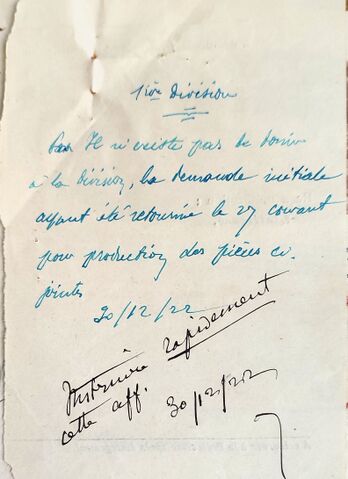 1ère Division
Il n'existe pas de dossier
à la division, la demande initiale
ayant été retourné le 27 courant
pour production des pièces ci-
jointes
30/12/22
Instruire rapidement
cette aff. 30/12/22